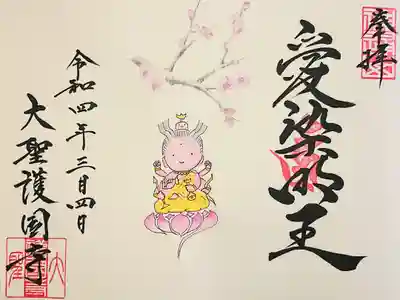 奉拝
愛染明王
令和四年三月四日
大聖護国寺